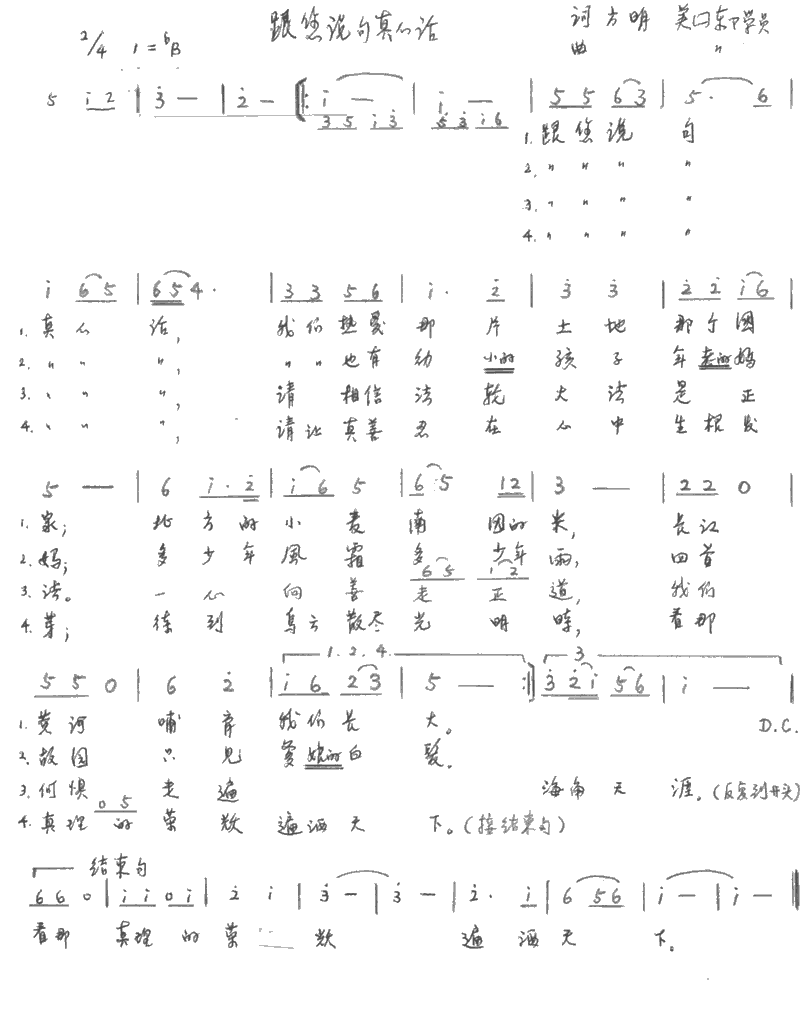 跟您说句真心话
词 方明 美口东部学员
2/4 1=♭B 曲 〃
5 i 2 | 3 — | 2 — |: i — | i — | 5 5 6 3 | 5 · 6 |
3 5 i 3 5 3 i 6
1. 跟 您 说 句
2. 〃 〃 〃 〃
3. 〃 〃 〃 〃
4. 〃 〃 〃 〃
i 6 5 | 6 5 4 · | 3 3 5 6 | i · 2 | 3 3 | 2 2 i 6 |
1. 真 心 话, 我们 热爱 那 片 土 地 那个 国
2. 〃 〃 〃, 〃 〃 也有 幼 小的 孩 子 年 老的 妈
3. 〃 〃 〃, 请 相信 法 轮 大 法 是 正
4. 〃 〃 〃, 请让 真善 忍 在 心 中 生根 发
5 — | 6 i · 2 | i 6 5 | 6 · 5 1 2 | 3 — | 2 2 0 |
1. 家; 北 方的 小 麦 南 国的 米, 长江
2. 妈; 多 少年 風 霜 多 少年 雨, 回首
6 5 i 2
3. 法。 一 心 向 善 走 正 道, 我们
4. 芽; 待 到 乌云 散尽 光 明 时, 看那
1. 2. 4. 3
5 5 0 | 6 2 | i 6 2 3 | 5 — :| 3 2 i 5 6 | i — |
1. 黄河 哺 育 我们 长 大。 D.C.
2. 故园 只 见 爹 娘的 白 髮.
3. 何惧 走 遍 海角 天 涯。(反复到开头)
0 5
4. 真理 的 荣 欢 遍洒天 下。(接结束句)
结束句
6 6 0 | i i 0 i | 2 i | 3 — | 3 — | 2 · i | 6 5 6 | i — | i — ‖
看那 真理 的 荣 欢 遍 洒 天 下。